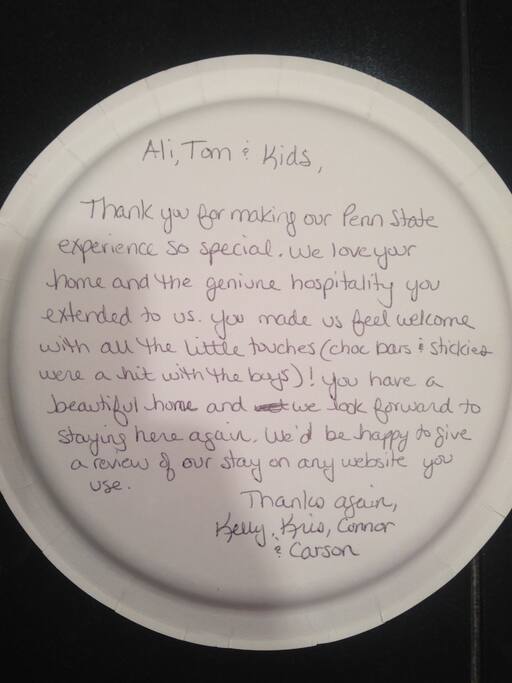 Ali, Tom & Kids,
Thank you for making our Penn State
experience so special. We love your
home and the geniune hospitality you
extended to us. You made us feel welcome
with all the little touches (choc bars & stickies
were a hit with the boys)! You have a
beautiful home and we look forward to
staying here again. We'd be happy to give
a review of our stay on any website you
use.
Thanks again,
Kelly, Kris, Connor
& Carson